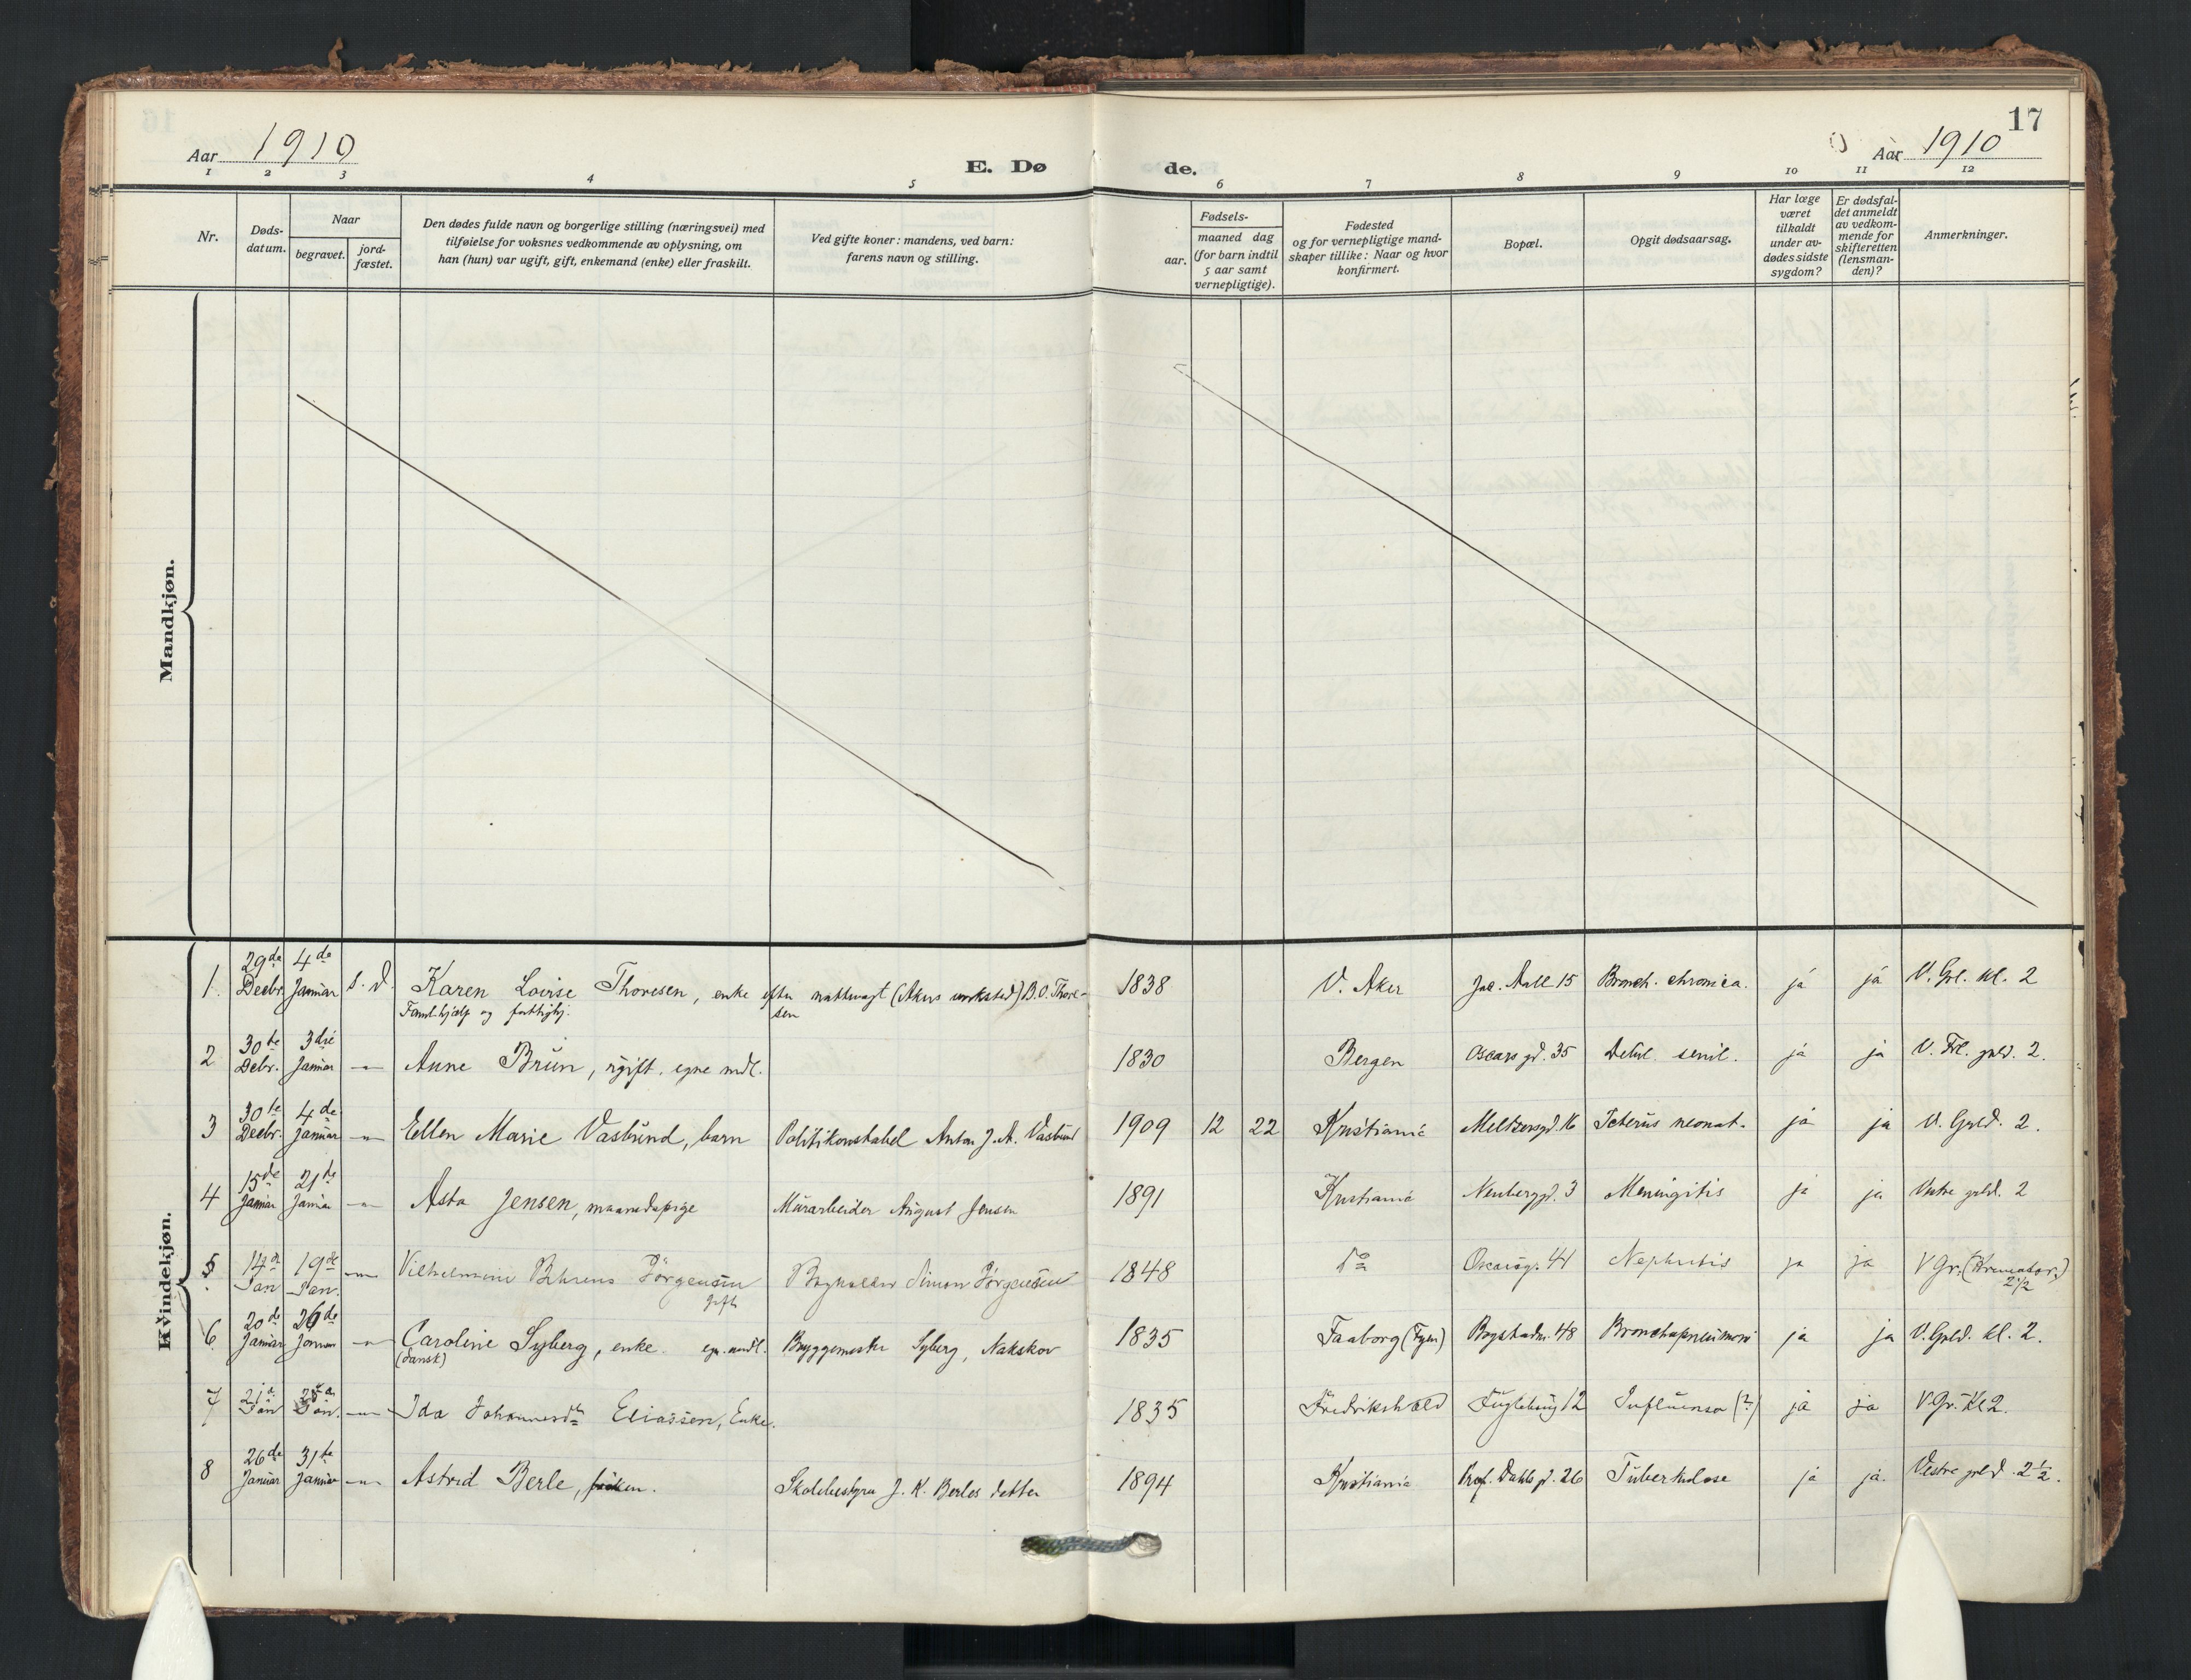 17
Aar 1910
E. Døde.
Aar 1910
1 2 3 4 5 6 7 8 9 10 11 12
Nr.
Døds-
datum.
Naar
begravet.
jord-
fæstet.
Den dødes fulde navn og borgerlige stilling (næringsvei) med
tilføielse for voksnes vedkommende av oplysning, om
han (hun) var ugift, gift, enkemand (enke) eller fraskilt.
Ved gifte koner: mandens, ved barn:
farens navn og stilling.
Fødsels-
aar.
maaned dag
(for barn indtil
5 aar samt
vernepligtige).
Fødested
og for vernepligtige mand-
skaper tillike: Naar og hvor
konfirmert.
Bopæl.
Opgit dødsaarsag.
Har læge
været
tilkaldt
under av-
dødes sidste
sygdom?
Er dødsfal-
det anmeldt
av vedkom-
mende for
skifteretten
(lensman-
den)?
Anmerkninger.
Mandkjøn.
Kvindekjøn.
1. 29de Decbr. 4de Januar s. d. Karen Lovise Thoresen, enke efter nattevagt (Akers verksted) B. O. Thore- 1838 V. Aker Jac. Aall 15 Bronch. chronica. ja ja V. Grl. kl. 2
sen
2 30te Debr. 3die Januar -"- Anne Brun, ugift. egne midl. 1830 Bergen Oscars gd. 35 Debil. senil. ja ja V. Frl. gvld. 2.
3 30te Decbr. 4de Januar -"- Ellen Marie Vasbund, barn Politikonstabel Anton J. A. Vasbund 1909 12 22 Kristiania Meltzersgd. 16 Icterus neonat. ja ja V. Gvld. 2.
4 15de Januar 21de Januar -"- Asta Jensen, maanedspige Murarbeider August Jensen 1891 Kristiania Neuberggd. 3 Meningitis ja ja Vestre gvld. 2
5 14de Jan 19de Jan. -"- Vilhelmine Behrens Jörgensen Bogholder Simon Jörgensen 1848 do Oscarsg. 44 Nephritis ja ja V Gr. (Kremator.)
gift
2 1/2
6 20de Januar 26de Januar -"- Caroline Syberg, enke. egn. midl. Bryggemester Syberg, Nakskov 1835 Faaborg (Fyen) Bogstadv. 48 Bronchopneumoni ja ja V. Gvld. kl. 2.
(dansk)
7 21de Jan Jan. -"- Ida Johannesdtr Eliassen, Enke. 1835 Fredrikshald 12 Influensa (?) ja ja V Gr. Kl 2.
8 26de Januar 31te Januar -"- Astrid Berle, frøken. Skolebestyrer J. K. Berles datter 1894 Kristiania Prof. Dahls gd. 26 Tuberkulose ja ja. Vestre gvld. 2 1/2.